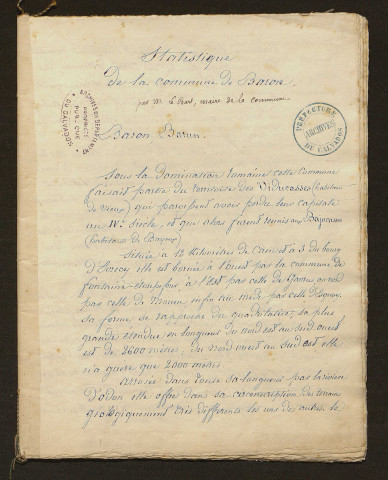 Statistique
de la commune de Baron
par M. maire de la commune
ARCHIVES DÉPARTEMENTALES
PROPRIÉTÉ
PUBLIQUE
DU CALVADOS
PRÉFECTURE
ARCHIVES
DU CALVADOS
Baron
Sous la domination romaine cette commune
faisait partie du territoire des Viducasses (habitans
de Vieux) qui paraissent avoir perdu leur capitale
au IVe siècle, et que alors furent réunis aux Bajocasses
(habitans de Bayeux)
Située à 12 kilomètres de Caen et à 3 du bourg
d'Evrecy elle est bornée à l'ouest par la commune de
fontaine-etoupefour, à l'Est par celle de au nord
par celle de enfin au midi par celle
sa forme se rapproche du quadrilatère; sa plus
grande étendue en longueur du nord est au sud ouest
est de 2600 mètres. du Nord ouest au sud est elle
n'a guère que 2000 mètres.
Arrosée dans toute sa longueur par la rivière
d'odon elle offre dans sa circonscription des terrains
géologiquement très différents les uns des autres. le